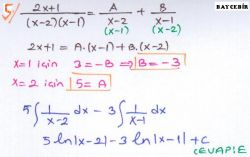 BAYCEBİR
5) (2x+1)/((x-2)(x-1)) = A/(x-2) + B/(x-1)
(x-1) (x-2)
2x+1 = A.(x-1)+B.(x-2)
x=1 için 3=-B ⇒ B=-3
x=2 için 5=A
5∫ 1/(x-2) dx - 3∫ 1/(x-1) dx
5ln|x-2|-3ln|x-1|+c
CEVAP:E